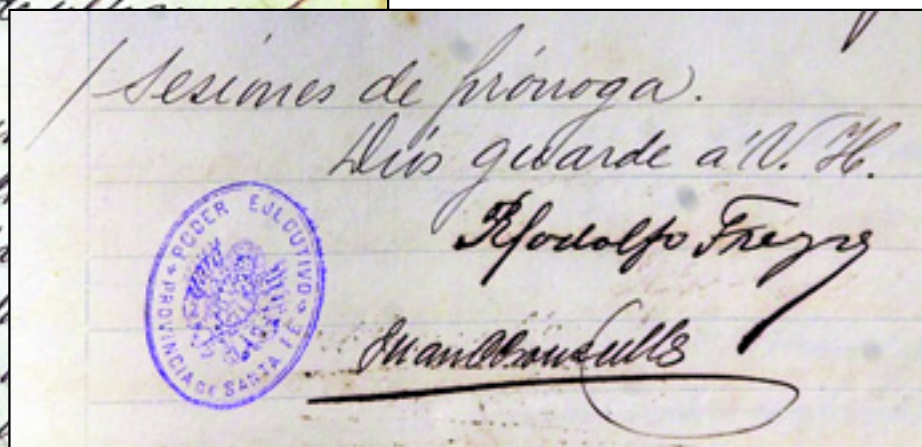 / Sesiones de prórroga.
Dios guarde a V. H.
Rodolfo Freyre
Juan
PODER EJECUTIVO
PROVINCIA DE SANTA FÉ